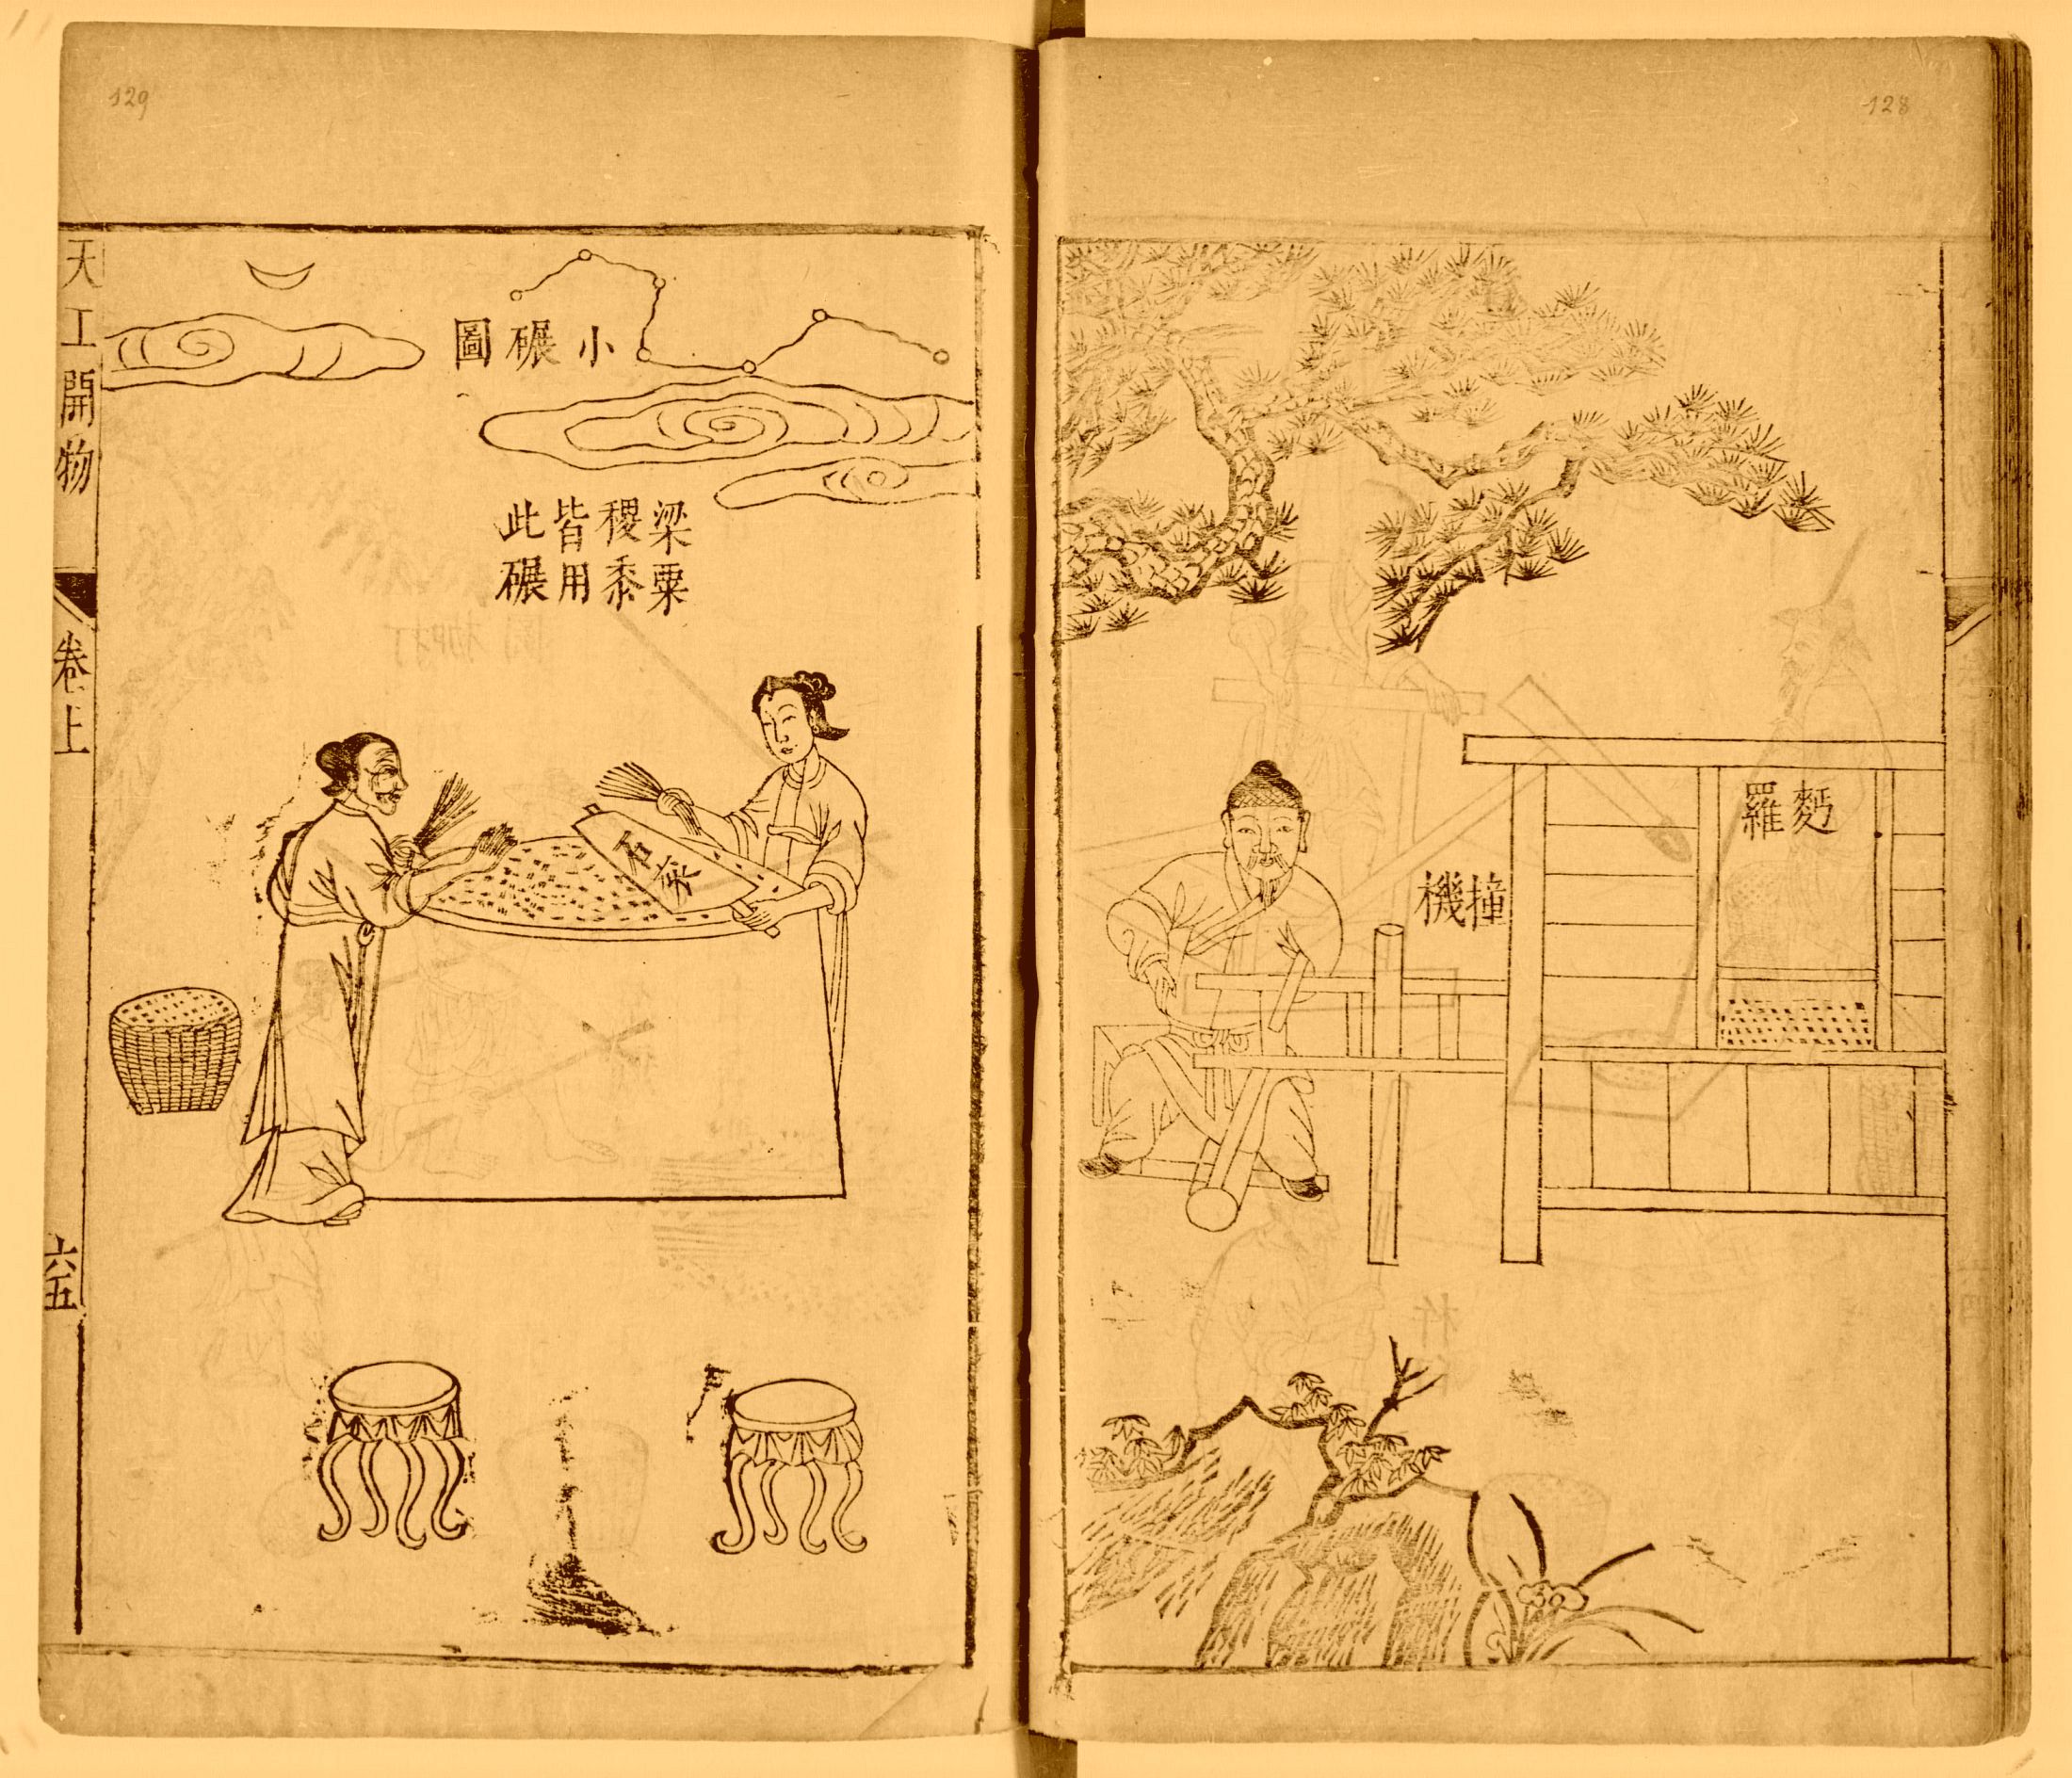 128
麪羅
撞機
129
小碾圖
梁粟
稷黍
皆用
此碾
石
天工開物
卷上
六五